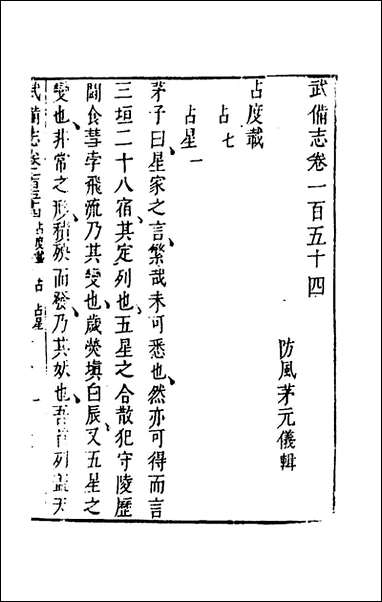 武備志卷一百五十四
防風茅元儀輯
占度載
占七
占星一
茅子曰星家之言繁哉未可悉也然亦可得而言
三垣二十八宿其定列也五星之合散犯守陵歷
鬬食彗孛飛流乃其變也歲熒填白辰又五星之
變也非常之形積殃而發乃其妖也吾首列蓋天
武備志卷一百五十四 占度載 占 占星